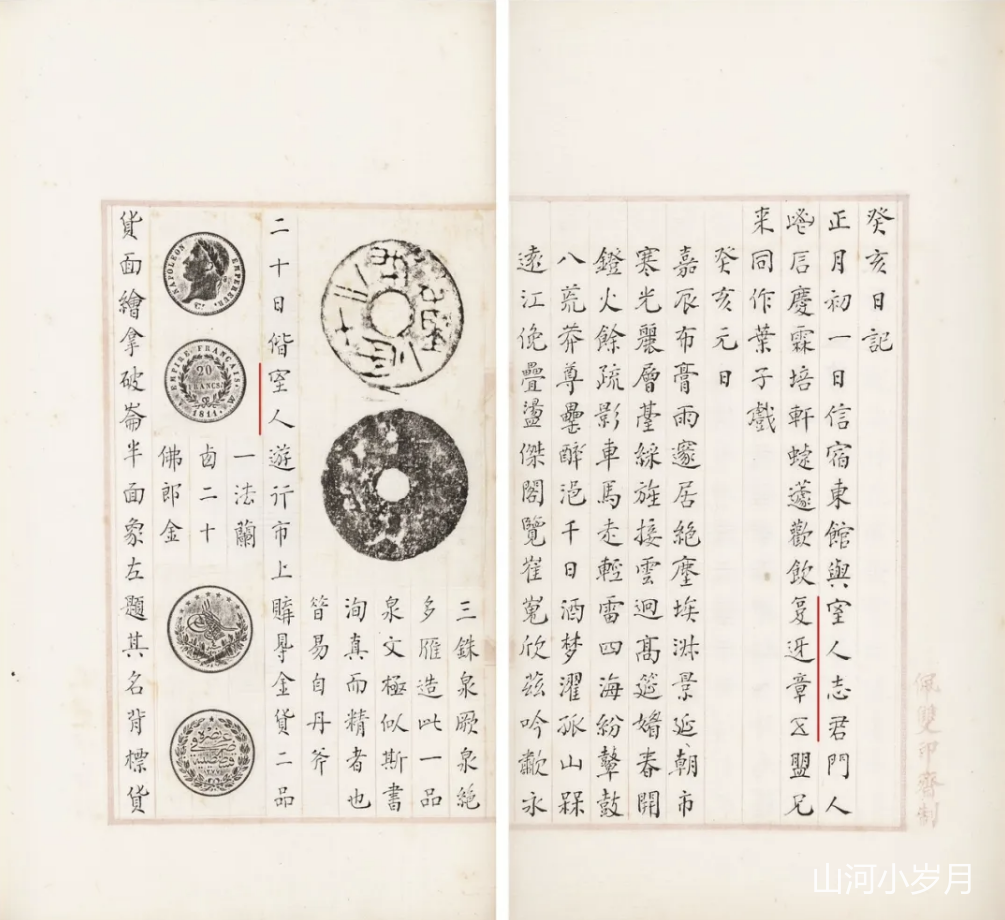 癸亥日記
正月初一日信宿東館與室人志君門人
慶霖培軒蘧歡飲复迓章盟兄
來同作葉子戲
癸亥元日
嘉辰布膏雨邃居絕塵埃淋景延朝市
寒光麗層臺綵旌接雲迥高筵媎春開
鐙火餘疏影車馬走輕雷四海紛鼙鼓
八荒莽尊罍醉浥千日酒梦濯孤山槑
遠江俛疊盪傑閣覽崔嵬欣茲吟歗永
佩雙印齋制
三銖泉厥泉絕
多雁造此一品
泉文極似斯書
洵真而精者也
易自丹斧
二十日偕室人遊行市上購㝵金貨二品
一法蘭
卤二十
佛郎金
NAPOLEON EMPEREUR.
EMPIRE FRANÇAIS.
20
FRANCS
1811.
貨面繪拿破崙半面象左題其名背標貨
山河小岁月